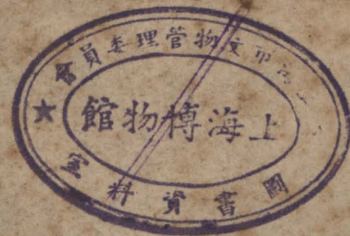 市文物管理委員會
上海博物館
圖書資料室